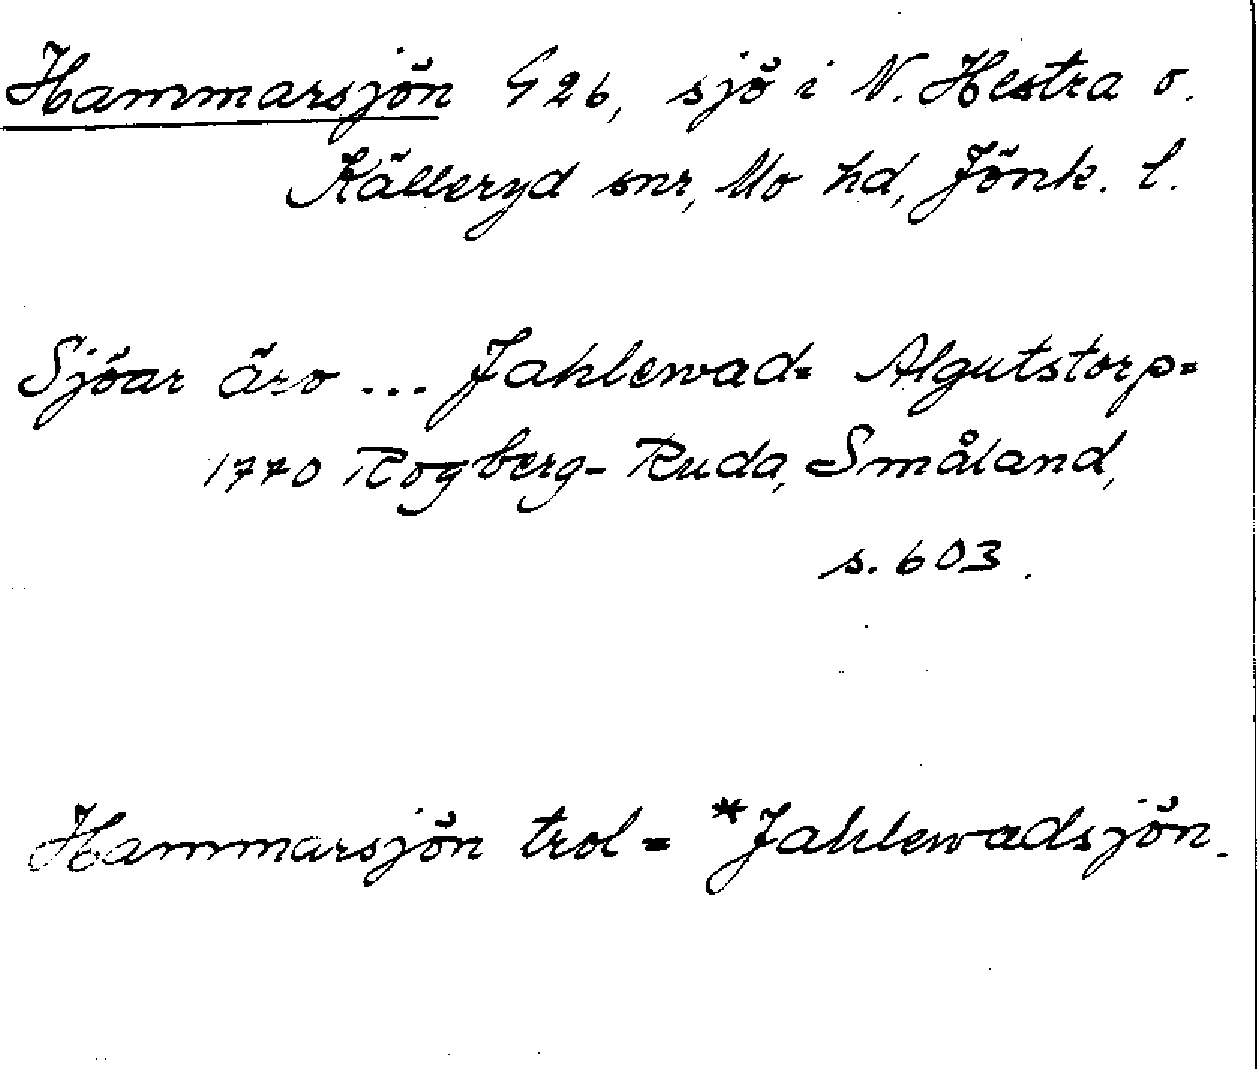 Hammarsjön G 26, sjö i N. Hestra o.
Källeryd snr, Mo hd, Jönk. l.
Sjöar äro ... Jahlewad= Algutstorp=
1770 Rogberg-Ruda, Småland,
s. 603.
Hammarsjön trol = *Jahlewadsjön.